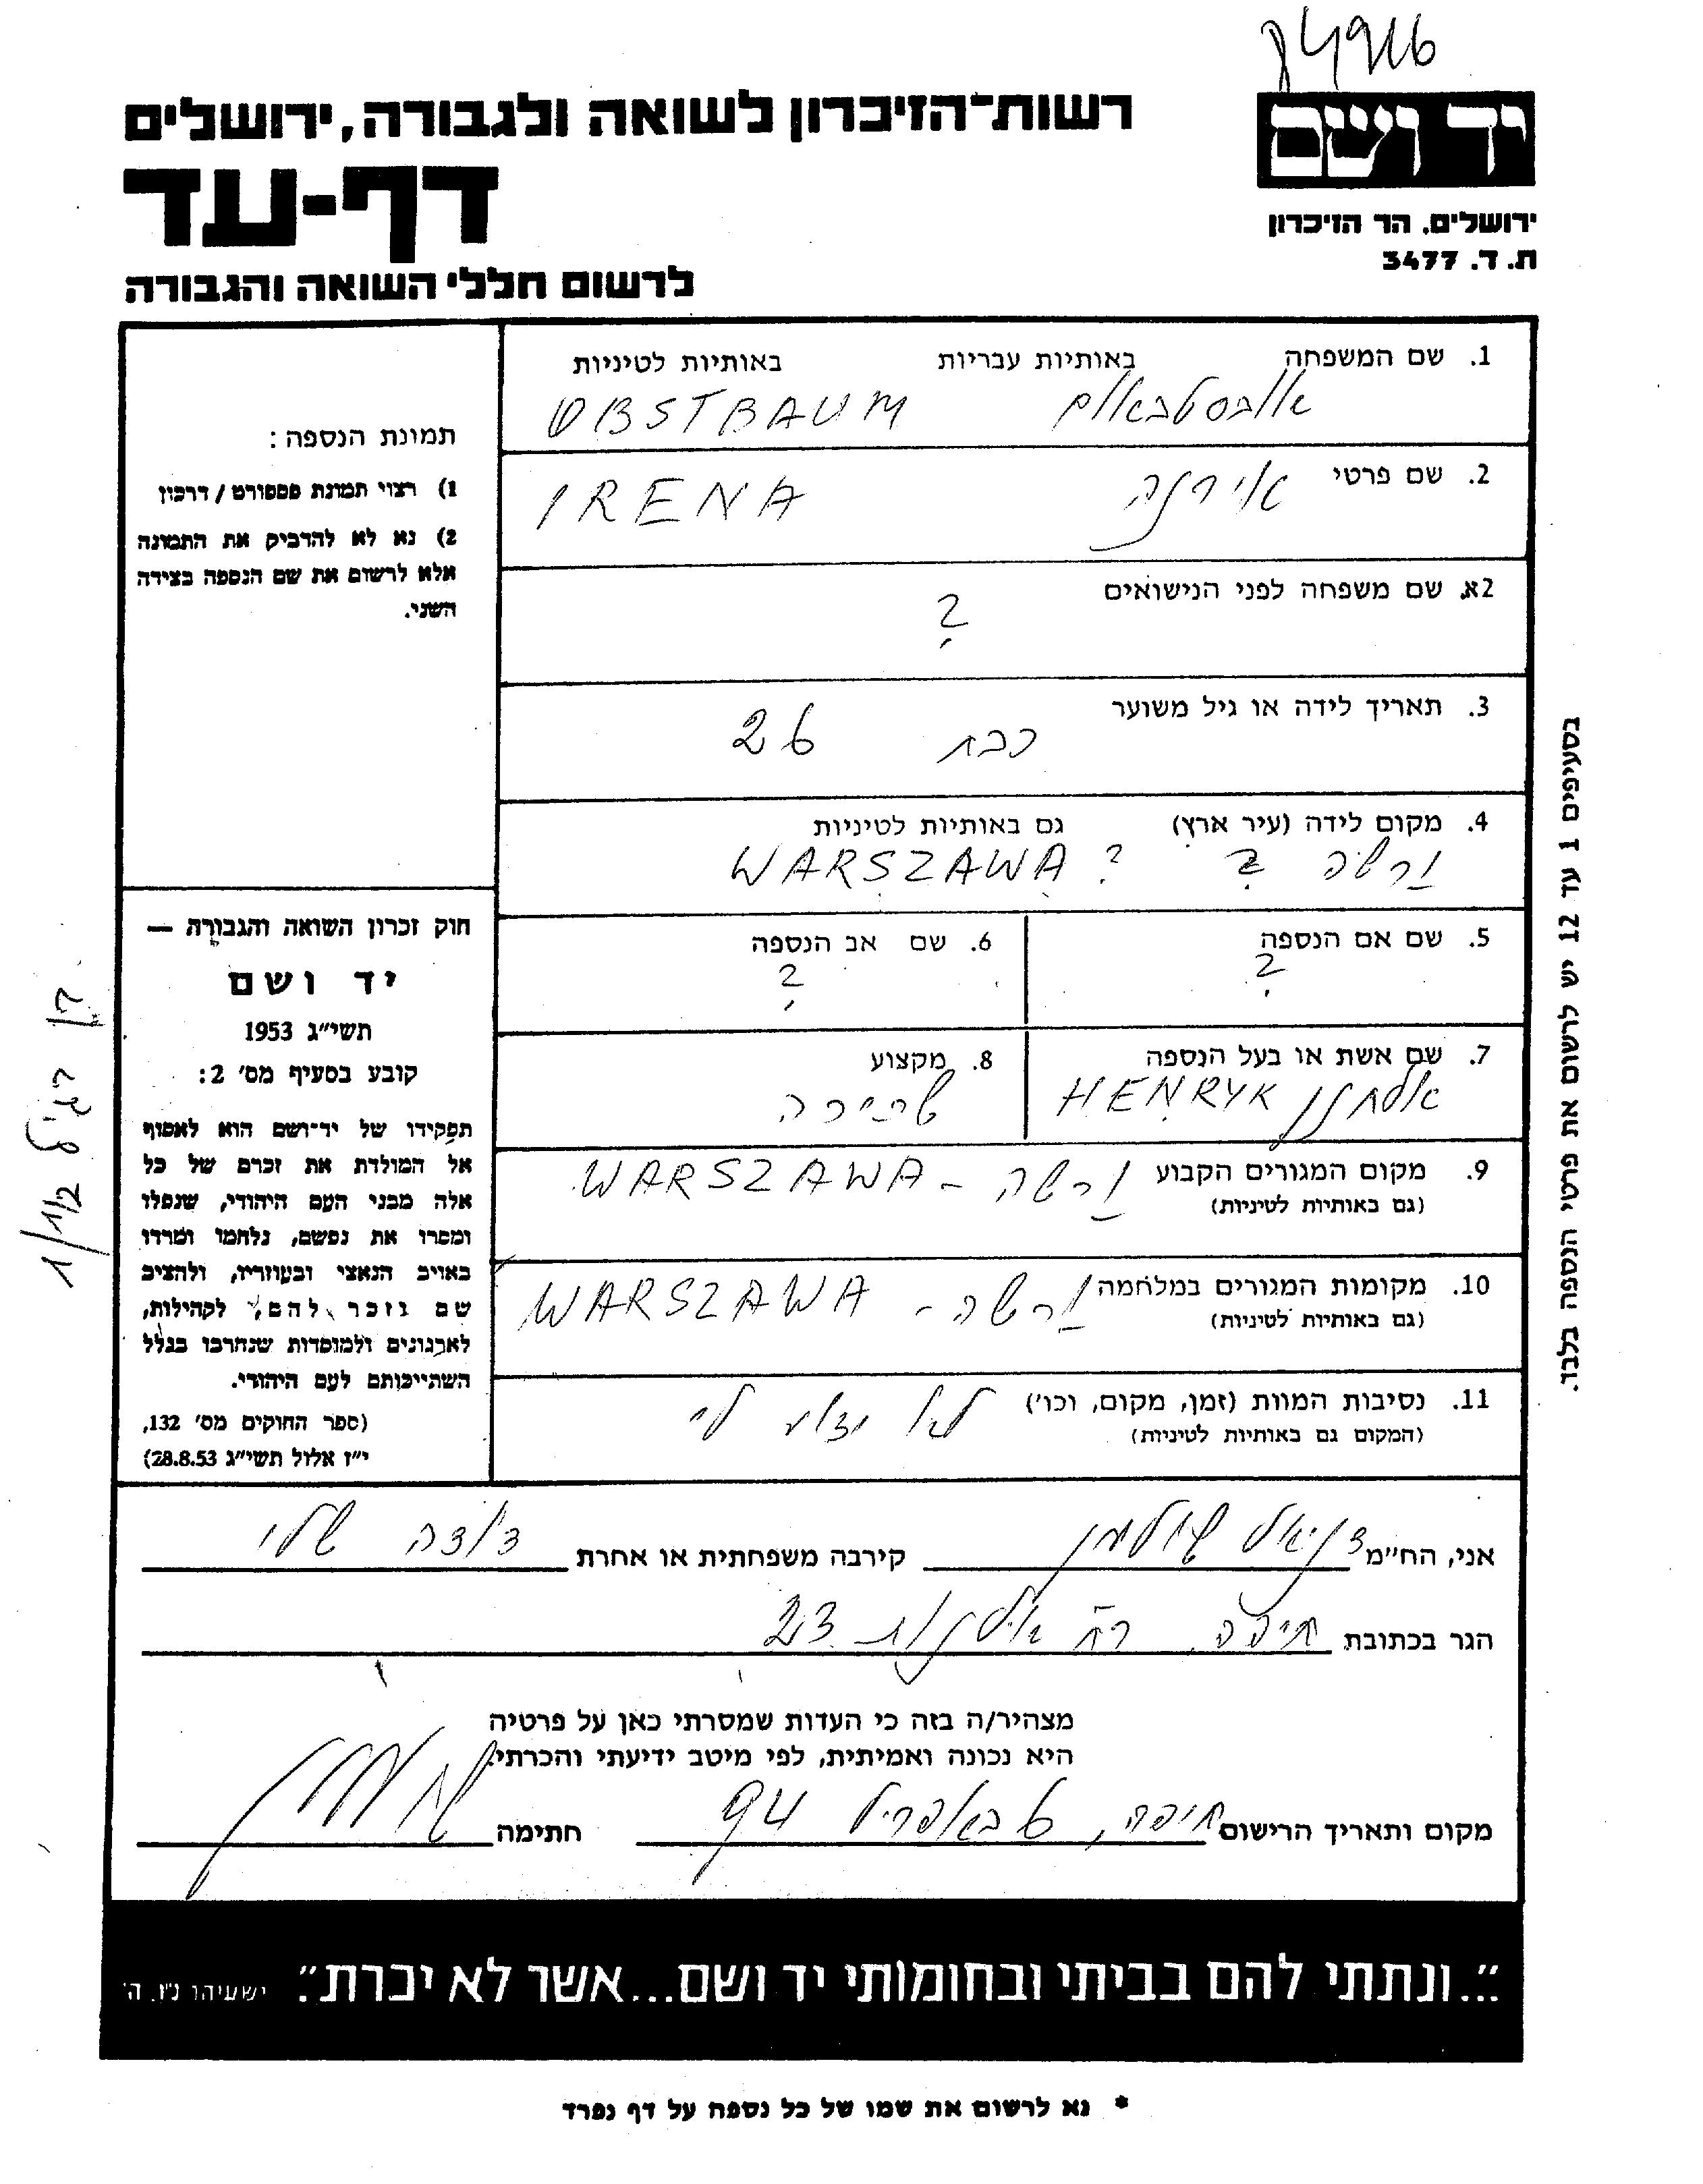 רשות־הזיכרון לשואה ולגבורה, ירושלים
דף-עד
לרשום חללי השואה והגבורה
יד ושם
ירושלים. הר הזיכרון
ת. ד. 3477
1. שם המשפחה באותיות עבריות באותיות לטיניות
אובסטבאום OBSTBAUM
2. שם פרטי אירנה IRENA
2א. שם משפחה לפני הנישואים
?
3. תאריך לידה או גיל משוער
כבת 26
4. מקום לידה (עיר ארץ) גם באותיות לטיניות
ורשה ? WARSZAWA ?
5. שם אם הנספה 6. שם אב הנספה
? ?
7. שם אשת או בעל הנספה 8. מקצוע
אלחנן HENRYK
9. מקום המגורים הקבוע ורשה - WARSZAWA
(גם באותיות לטיניות)
10. מקומות המגורים במלחמה ורשה - WARSZAWA
(גם באותיות לטיניות)
11. נסיבות המוות (זמן, מקום, וכו') לא ידוע לי
(המקום גם באותיות לטיניות)
תמונת הנספה:
1) רצוי תמונת פספורט / דרכון
2) נא לא להדביק את התמונה
אלא לרשום את שם הנספה בצידה
השני.
חוק זכרון השואה והגבורה —
יד ושם
תשי״ג 1953
קובע בסעיף מס׳ 2:
תפקידו של יד־ושם הוא לאסוף
אל המולדת את זכרם של כל
אלה מבני העם היהודי, שנפלו
ומסרו את נפשם, נלחמו ומרדו
באויב הנאצי ובעוזריו, ולהציב
שם וזכר להם, לקהילות,
לארגונים ולמוסדות שנחרבו בגלל
השתייכותם לעם היהודי.
(ספר החוקים מס׳ 132,
י״ז אלול תשי״ג 28.8.53)
בסעיפים 1 עד 12 יש לרשום את פרטי הנספה בלבד.
אני, הח״מ דניאל שולמן קירבה משפחתית או אחרת דודה שלי
הגר בכתובת חיפה רח אילנות 23
מצהיר/ה בזה כי העדות שמסרתי כאן על פרטיה
היא נכונה ואמיתית, לפי מיטב ידיעתי והכרתי.
מקום ותאריך הרישום חיפה, 6 באפריל 94 חתימה
"...ונתתי להם בביתי ובחומותי יד ושם...אשר לא יכרת". ישעיהו נ״ו, ה׳
* נא לרשום את שמו של כל נספה על דף נפרד